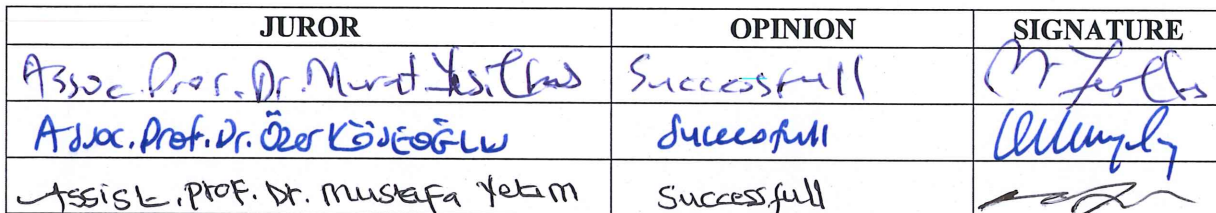 JUROR OPINION SIGNATURE
Assoc. Prof. Dr. Murat Yeşiltaş Successfull
Assoc. Prof. Dr. Özer KÖSEOĞLU Successfull
Assist. Prof. Dr. Mustafa Yetim Successfull